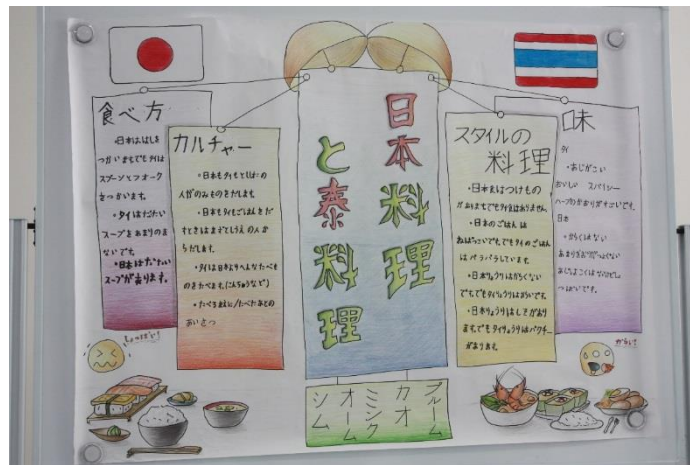 日本料理
と泰料理
食べ方
・日本ははしを
つかいますでもタイは
スプーンとフォーク
をつかいます。
・タイはだいたい
スープをあまりのま
ないです。
・日本はだいたい
スープがあります。
カルチャー
・日本もタイも
人がのみものをだします。
・日本もタイもごはんをだ
すときはまずとしうえの人か
らだします。
・タイは日本よりへんなたべも
のをたべます。(こんちゅうなど)
・たべるまえに/たべたあとの
あいさつ
スタイルの
料理
・日本はつけもの
がありますでもタイはありません。
・日本のごはんは
ねばっこいでもタイのごはん
はパラパラしています。
・日本りょうりはからくない
ですでもタイりょうりはからいです。
・日本りょうりはしそがあり
ますでもタイりょうりはパクチー
があります。
味
タイ
・あじがこい
スパイシー
ハーブのかおりがすごいです。
日本
・からくはない
しょっぱい!
からい!
プルーム
カオ
ミミンク
オーム
シム